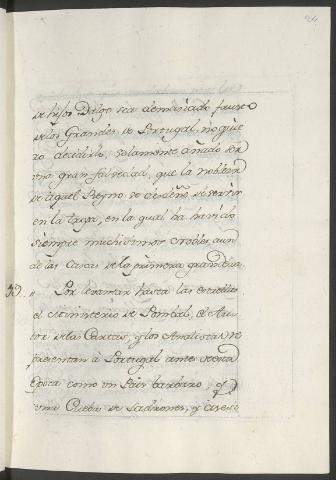 24
de hijos Dalgo sea demasiado fauso
de los Grandes de Portugal, no quie
ro decidirlo, solamente añado ser
una gran falsedad, que la nobleza
de aquel Reyno se desdeñe de servir
en la tropa, en la qual ha havido
siempre muchisimos nobles, aun
de las Casas de la primera grandeza.
Por levantar hasta las estrellas
el ministerio de Pombal, el Au
tor de las Cartas, y los Analistas re
presentan à Portugal antes de esta
Epoca como un Pais barbaro, y
una Cueba de Ladrones, y